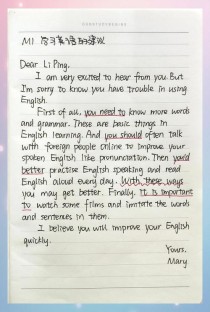 M1 学习英语的建议
Dear Li Ping,
I am very excited to hear from you. But
I'm sorry to know you have trouble in using
English.
First of all, you need to know more words
and grammar. These are basic things in
English learning. And you should often talk
with foreign people online to improve your
spoken English like pronunciation. Then you'd
better practise English speaking and read
English aloud every day. With these ways
you may get better. Finally, it is important
to watch some films and imitate the words
and sentences in them.
I believe you will improve your English
quickly.
Yours,
Mary